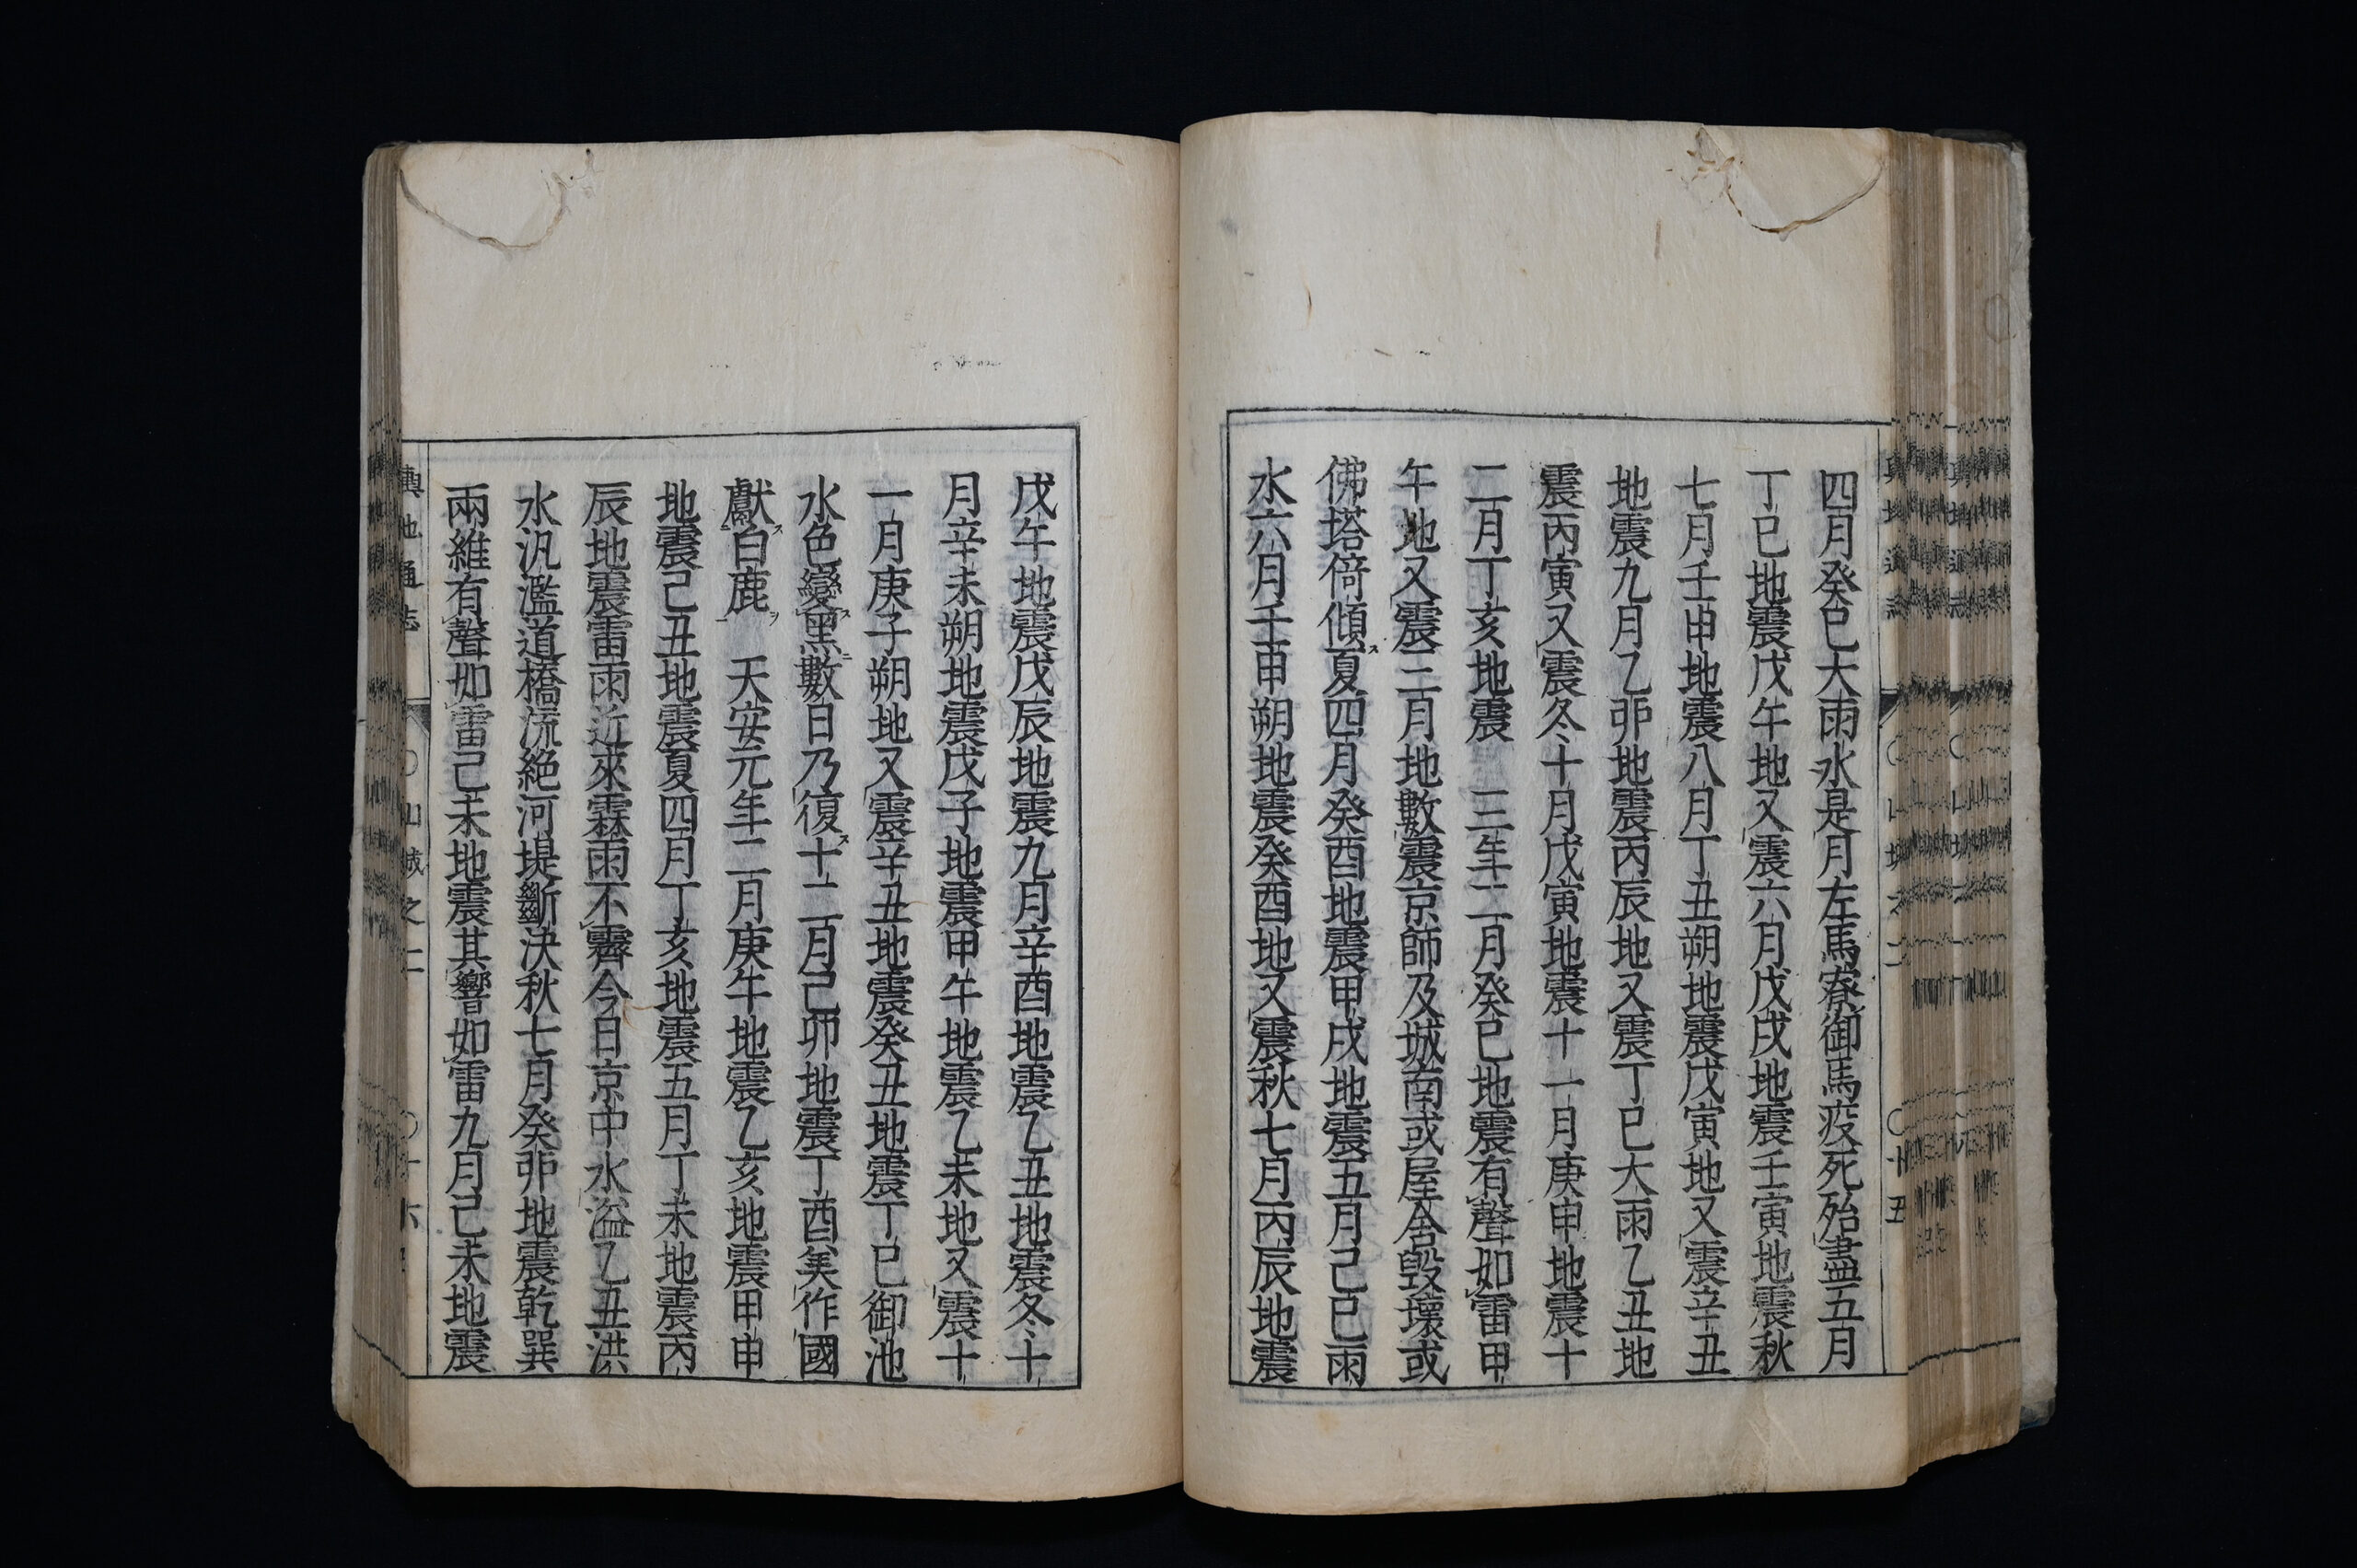 四月癸巳大雨水是月左馬寮御馬疫死殆盡五月
丁巳地震戊午地又震六月戊戌地震壬寅地震秋
七月壬申地震八月丁丑朔地震戊寅地又震辛丑
地震九月乙卯地震丙辰地又震丁巳大雨乙丑地
震丙寅又震冬十月戊寅地震十一月庚申地震十
二月丁亥地震　三年二月癸巳地震有聲如雷甲
午地又震三月地數震京師及城南或屋舍毀壞或
佛塔倚傾ス夏四月癸酉地震甲戌地震五月己巳雨
水六月壬申朔地震癸酉地又震秋七月丙辰地震
戊午地震戊辰地震九月辛酉地震乙丑地震冬十
月辛未朔地震戊子地震甲午地震乙未地又震十
一月庚子朔地又震辛丑地震癸丑地震丁巳御池
水色變ス黑ニ數日乃復ス十二月己卯地震丁酉美作國
獻ス白鹿ヲ　天安元年二月庚午地震乙亥地震甲申
地震己丑地震夏四月丁亥地震五月丁未地震丙
辰地震雷雨近來霖雨不霽今日京中水溢乙丑洪
水汎濫道橋流絶河堤斷決秋七月癸卯地震乾巽
兩維有聲如雷己未地震其響如雷九月己未地震
輿地通志　山城之二　十六